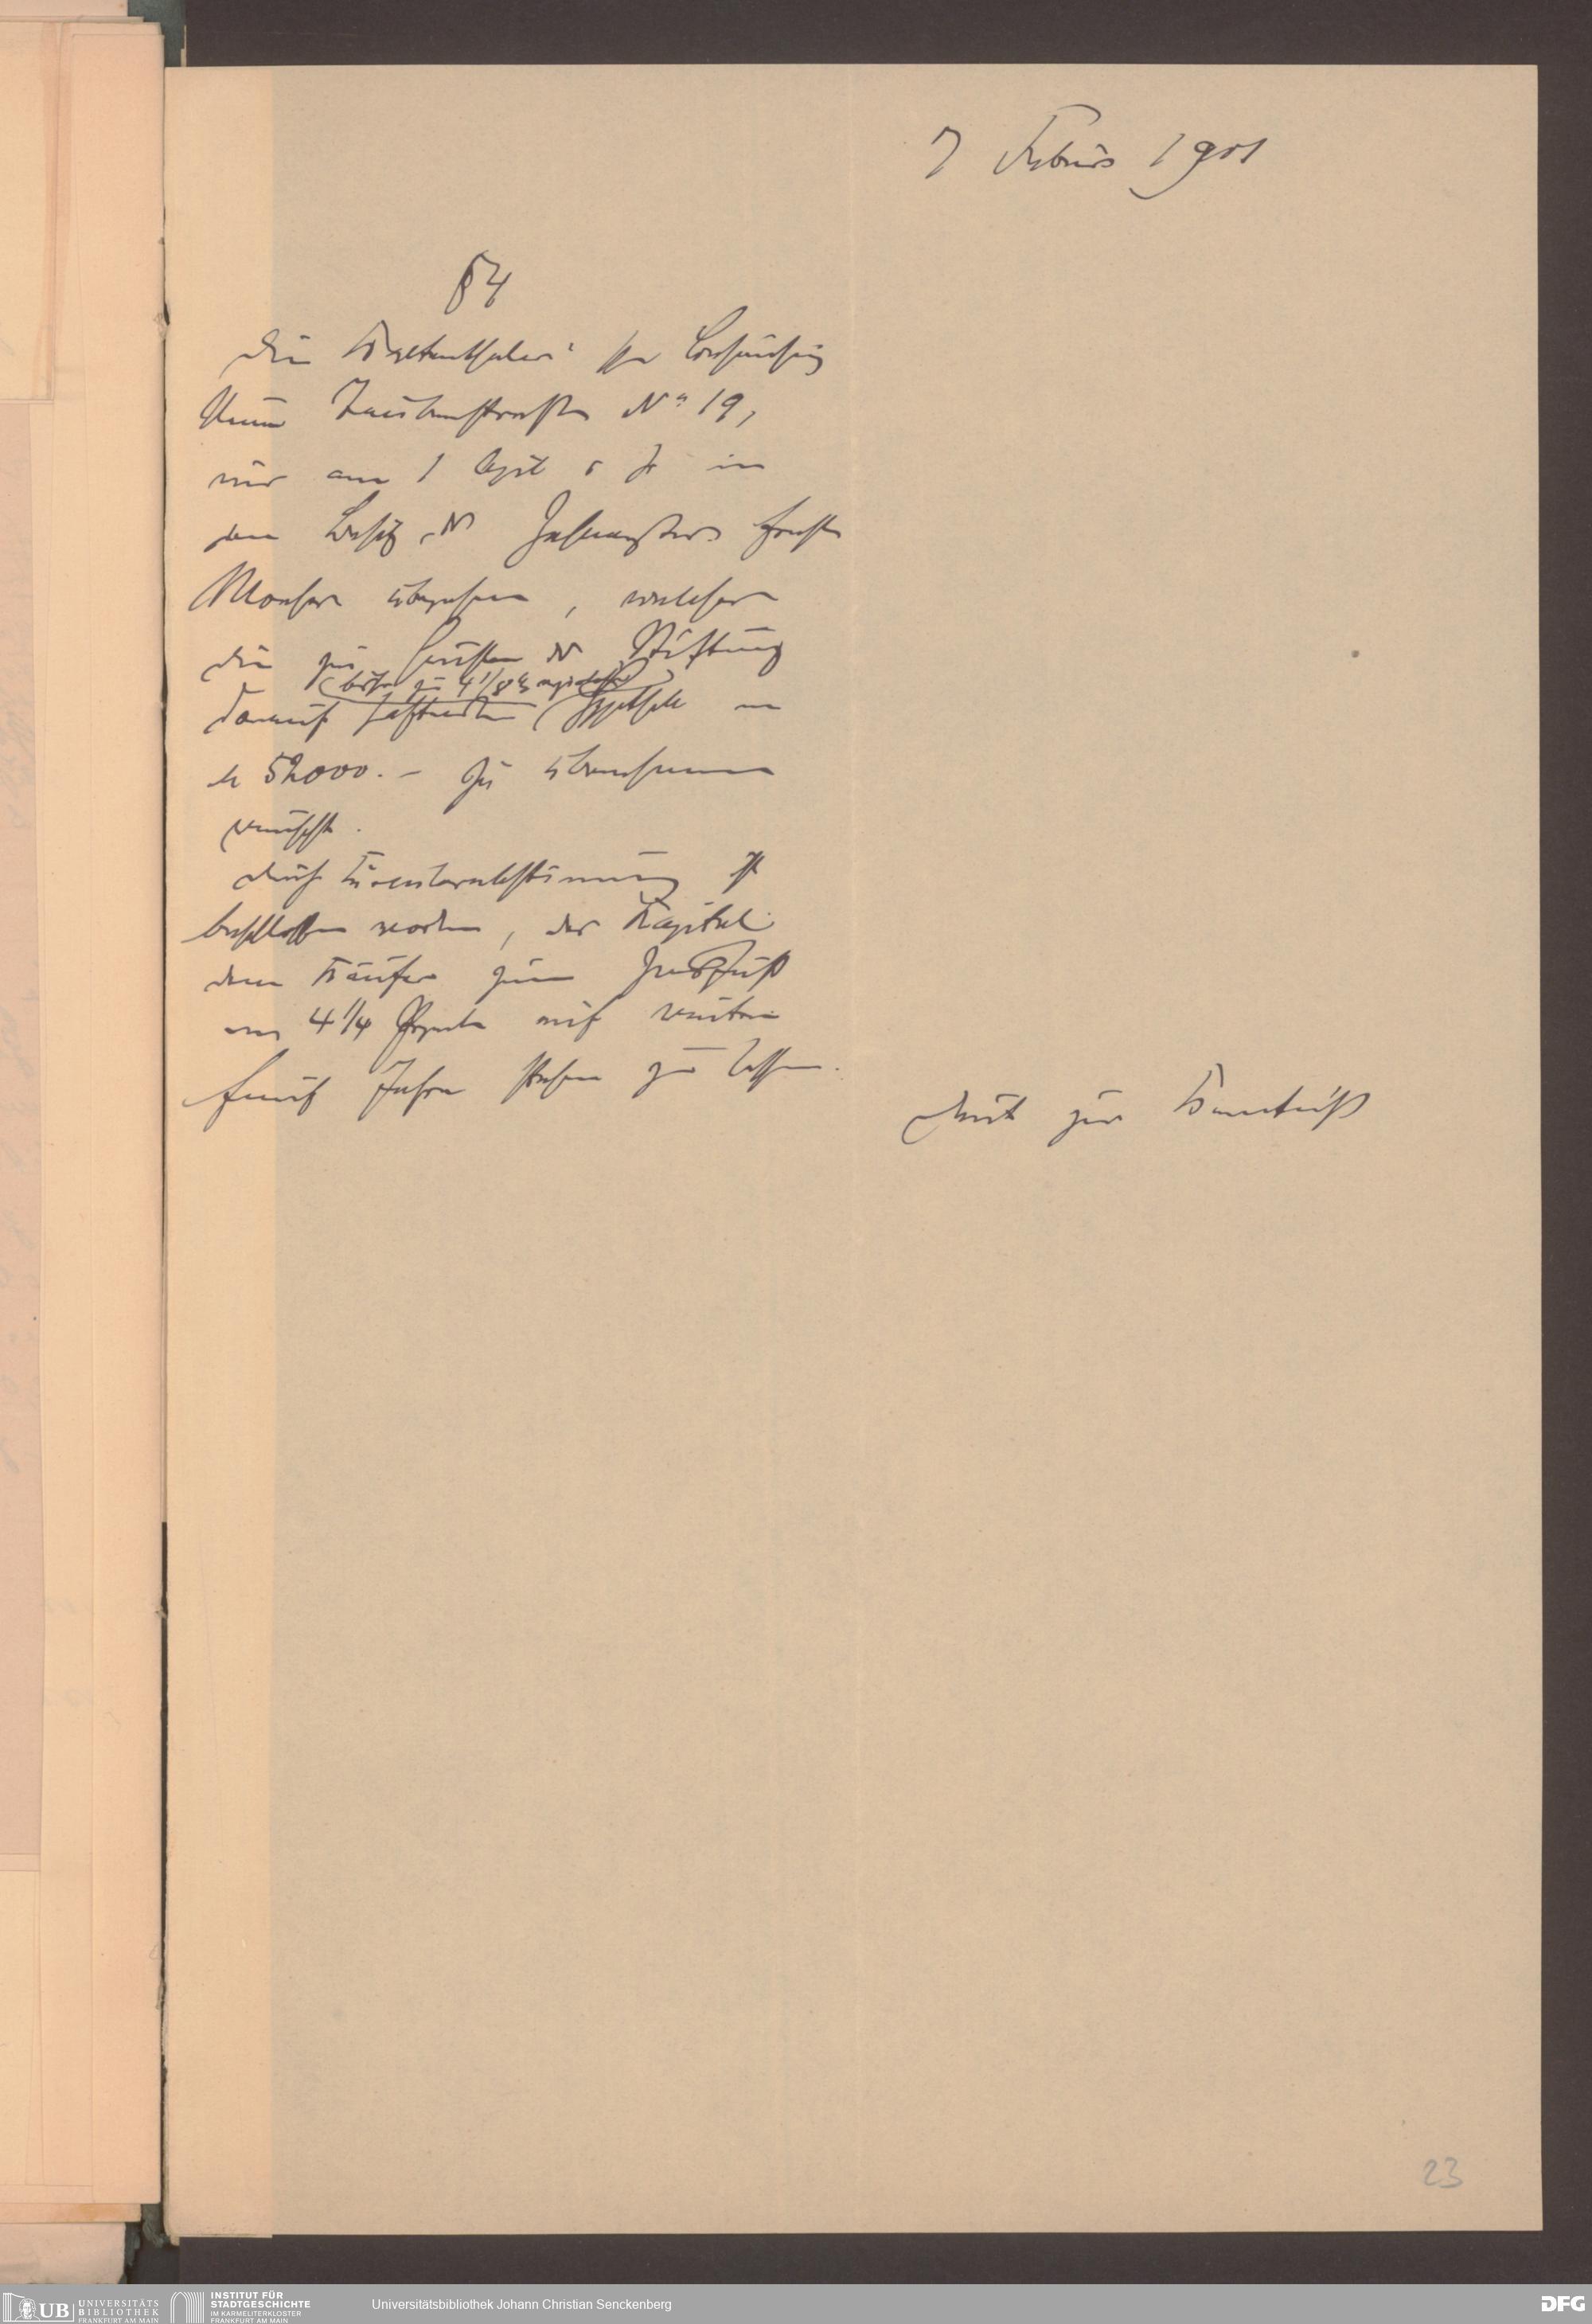 7 Februar 1901
§ 4
Die Behausung
Neue No 19,
wird am 1 April d J in
den Besitz des Ernst
übergehen, welcher
die zu Gunsten der Stiftung
(bisher zu 4 1/8 %
darauf haftende Hypothek von
M 52000.- zu übernehmen
wünscht.
Durch ist
beschlossen worden, das Kapital
dem Käufer zum Zinsfuß
von 4 1/4 Prozent auf weitere
fünf Jahre stehen zu lassen.
Dient zur Kenntniß
23
UB UNIVERSITÄTS
BIBLIOTHEK
FRANKFURT AM MAIN
INSTITUT FÜR
STADTGESCHICHTE
IM KARMELITERKLOSTER
FRANKFURT AM MAIN
Universitätsbibliothek Johann Christian Senckenberg
DFG